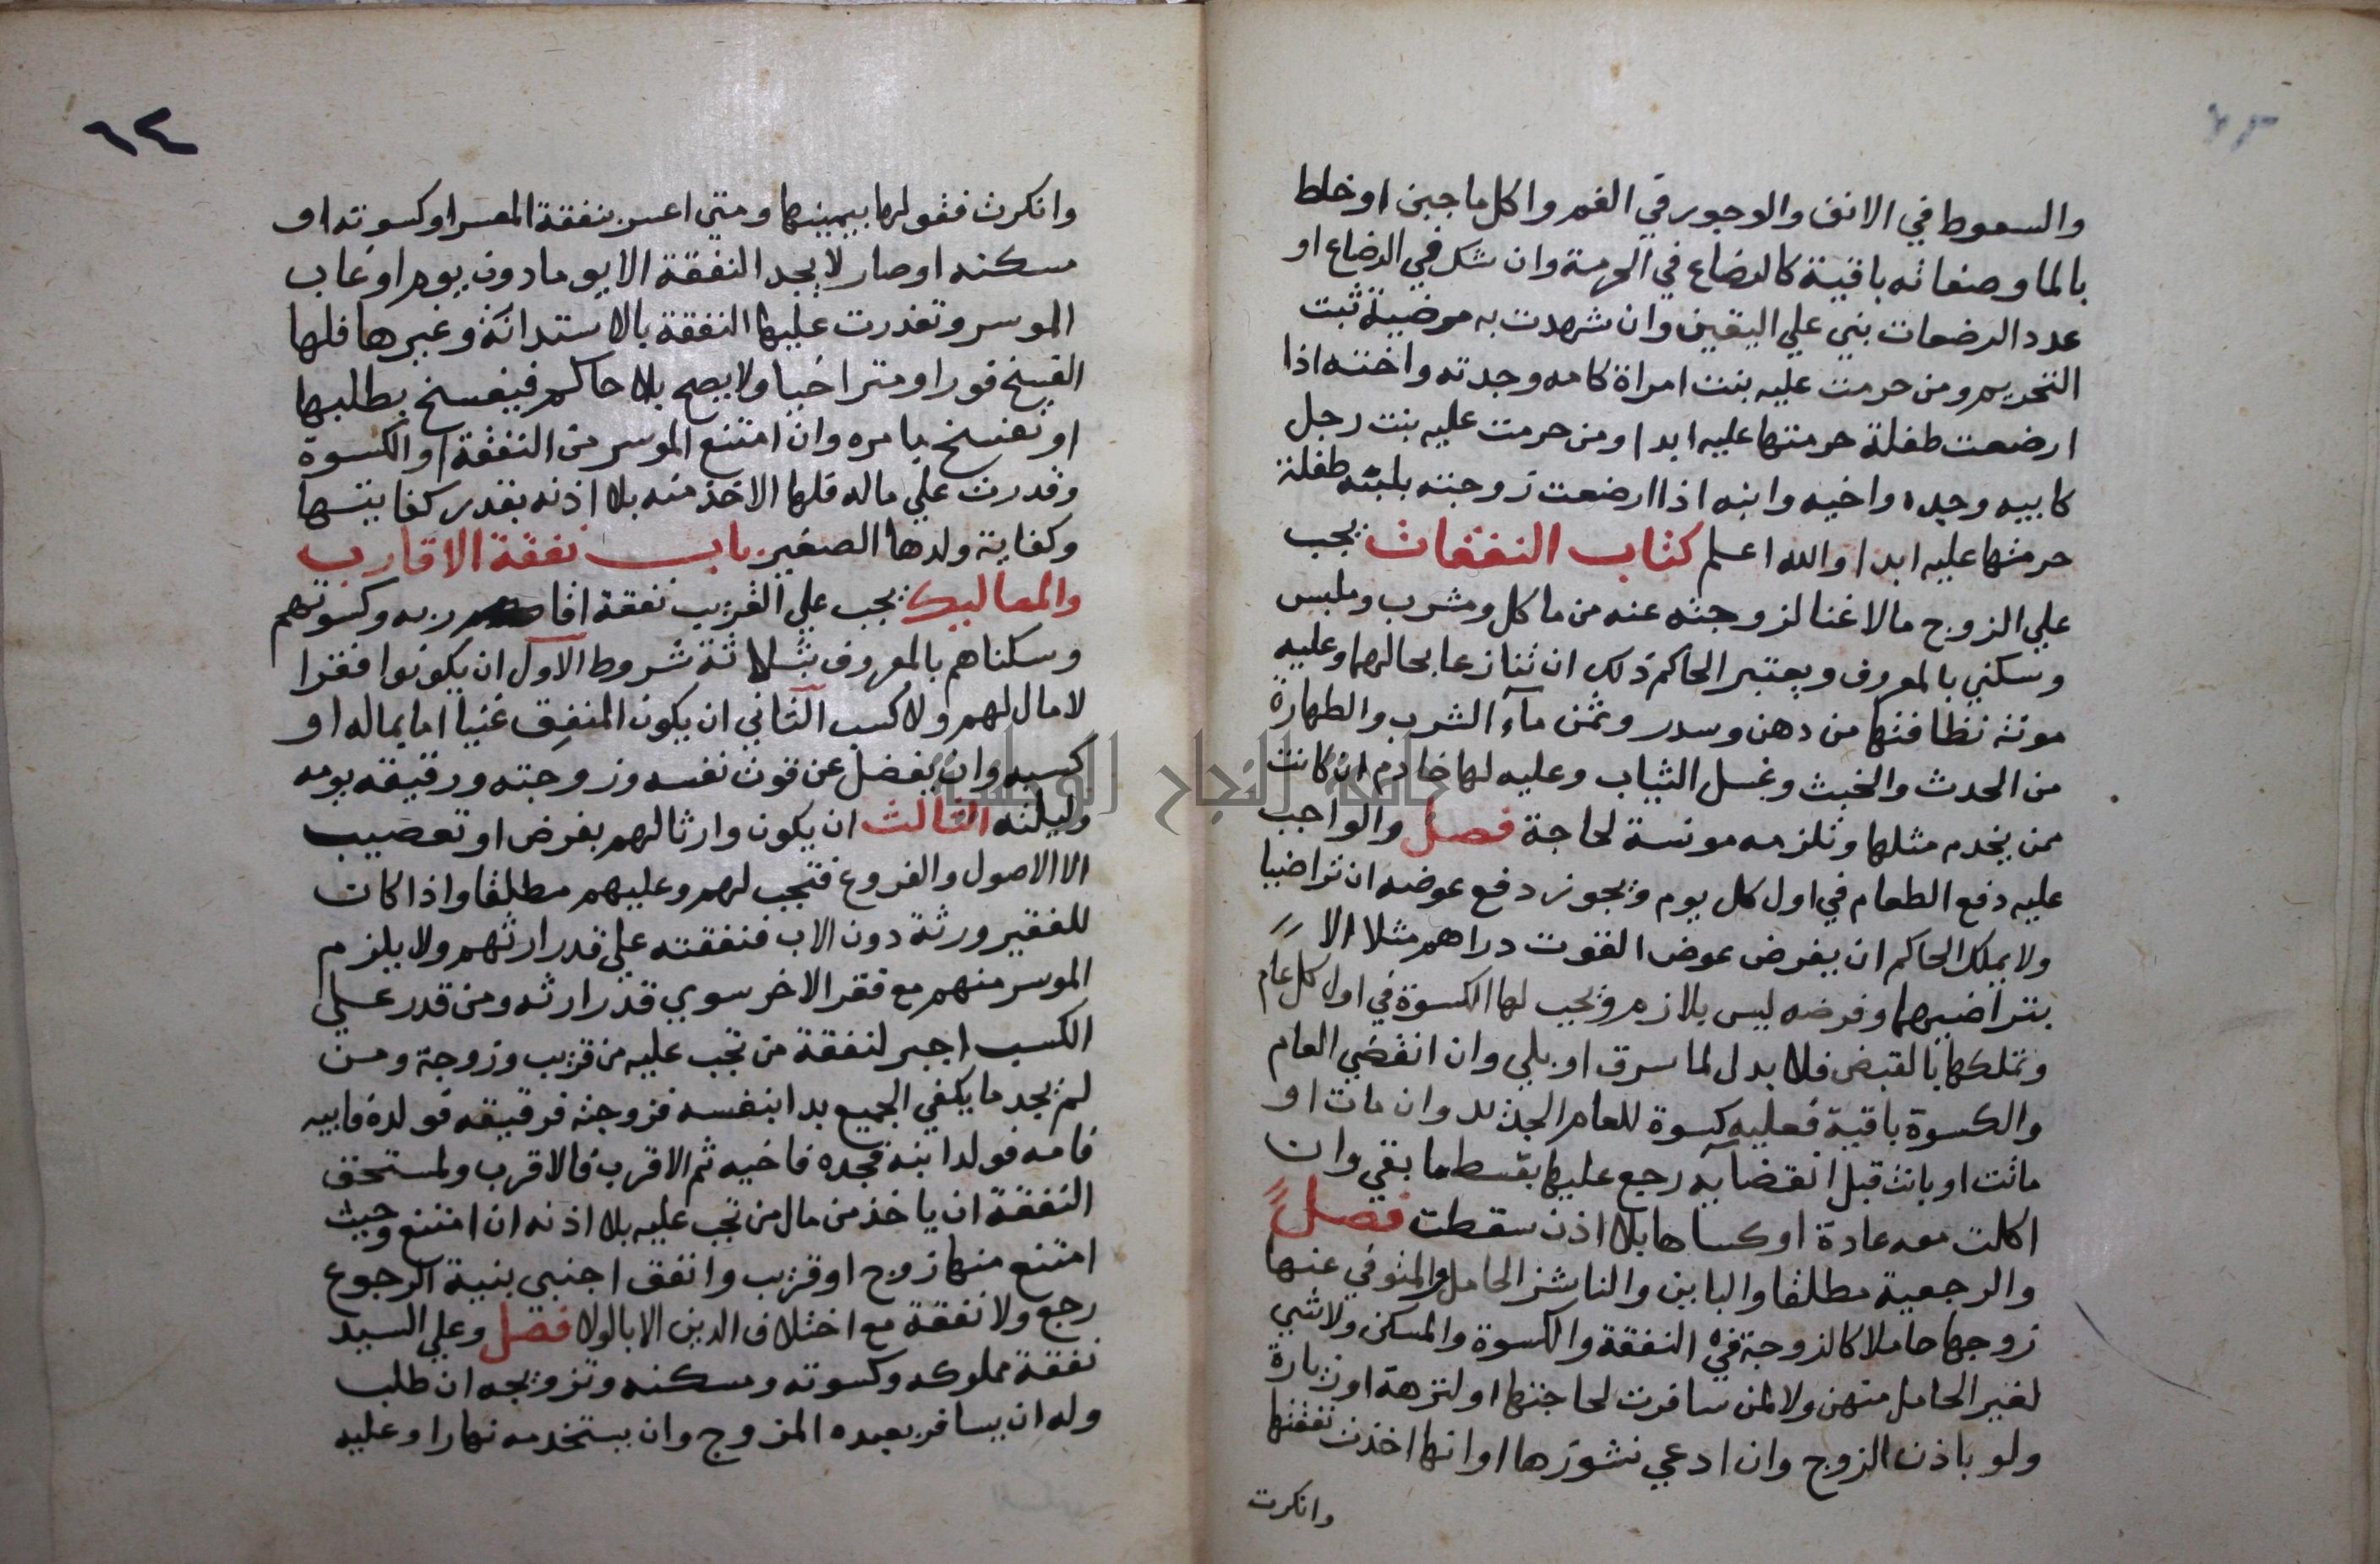 والسعوط في الانف والوجور في الفم واكل ما جبن او خلط
بالما وصفاته باقية كالرضاع في الحرمة وان شك في الرضاع او
عدد الرضعات بني علي اليقين وان شهدت به مرضية ثبت
التحريم ومن حرمت عليه بنت امراة كامه وجدته واخته اذا
ارضعت طفلة حرمتها عليه ابدا ومن حرمت عليه بنت رجل
كابيه وجده واخيه وابنه اذا ارضعت زوجته بلبنه طفلة
حرمتها عليه ابدا والله اعلم كتاب النفقات يجب
علي الزوج مالا غنا لزوجته عنه من ماكل ومشرب وملبس
وسكني بالمعروف ويعتبر الحاكم ذلك ان تنازعا بحالهما وعليه
مونة نظافتها من دهن وسدر وثمن مآء الشرب والطهارة
من الحدث والخبث وغسل الثياب وعليه لها خادم ان كانت
ممن يخدم مثلها وتلزمه مونسة لحاجة فصل والواجب
عليه دفع الطعام في اول كل يوم ويجوز دفع عوضه ان تراضيا
ولا يملك الحاكم ان يفرض عوض القوت دراهم مثلا الا
بتراضيهما وفرضه ليس بلازم ويجب لها الكسوة في اول كل عام
وتملكها بالقبض فلا بدل لما سرق او بلي وان انقضي العام
والكسوة باقية فعليه كسوة للعام الجديد وان مات او
ماتت او بانت قبل انقضايه رجع عليها بقسط ما بقي وان
اكلت معه عادة او كساها بلا اذن سقطت فصل
والرجعية مطلقا والباين والناشز الحامل والمتوفي عنها
زوجها حاملا كالزوجة في النفقة والكسوة والمسكن ولا شي
لغير الحامل منهن ولا لمن سافرت لحاجتها او لنزهة او زيارة
ولو باذن الزوج وان ادعي نشوزها او انها اخذت نفقتها
وانكرت
٦٤
وانكرت فقولها بيمينها ومتي اعسر بنفقة المعسر او كسوته او
مسكنه او صار لا يجد النفقة الا يوما دون يوم او غاب
الموسر وتعذرت عليها النفقة بالاستدانة وغيرها فلها
الفسخ فورا ومتراخيا ولا يصح بلا حاكم فيفسخ بطلبها
او تفسخ بامره وان امتنع الموسر من النفقة او الكسوة
وقدرت علي ماله فلها الاخذ منه بلا اذنه بقدر كفايتها
وكفاية ولدها الصغير باب نفقة الاقارب
والمماليك يجب علي القريب نفقة اقا ربه وكسوتهم
وسكناهم بالمعروف بثلاثة شروط الاول ان يكونوا فقرا
لا مال لهم ولا كسب الثاني ان يكون المنفق غنيا اما بماله او
كسبه وان يفضل عن قوت نفسه وزوجته ورقيقه يومه
وليلته الثالث ان يكون وارثا لهم بفرض او تعصيب
الا الاصول والفروع فتجب لهم وعليهم مطلقا واذا كان
للفقير ورثة دون الاب فنفقته علي قدر ارثهم ولا يلزم
الموسر منهم مع فقر الاخر سوي قدر ارثه ومن قدر علي
الكسب اجبر لنفقة من تجب عليه من قريب وزوجة ومن
لم يجد ما يكفي الجميع بدا بنفسه فزوجته فرقيقه فولده فابيه
فامه فولد ابنه فجده فاخيه ثم الاقرب فالاقرب ولمستحق
النفقة ان ياخذ من مال من تجب عليه بلا اذنه ان امتنع وحيث
امتنع منها زوج او قريب وانفق اجنبي بنية الرجوع
رجع ولا نفقة مع اختلاف الدين الا بالولا فصل وعلي السيد
نفقة مملوكه وكسوته ومسكنه وتزويجه ان طلب
وله ان يسافر بعبده المزوج وان يستخدمه نهارا وعليه
جامعة النجاح الوطنية